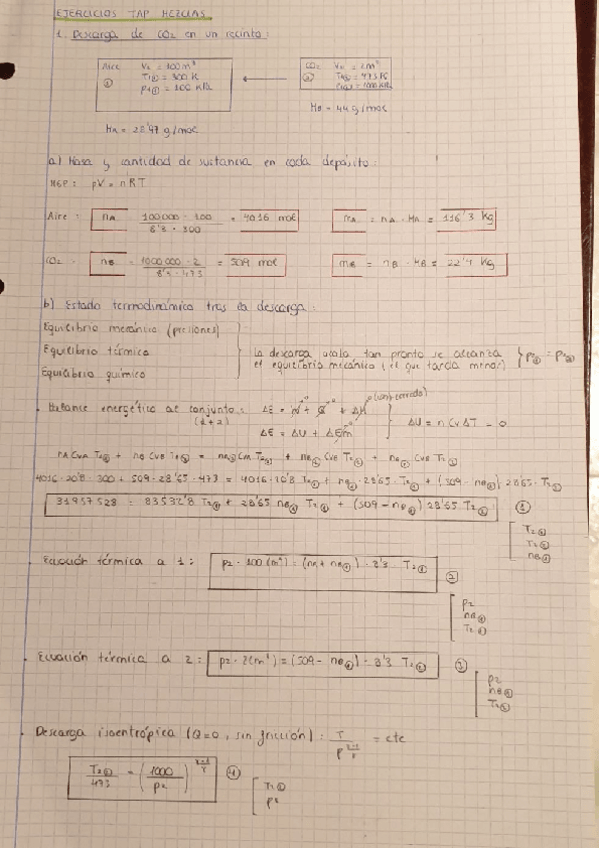 EJERCICIOS TAP MEZCLAS
1. Descarga de CO2 en un recinto:
Aire V1 = 100 m³
① T1① = 300 K
P1① = 100 kPa
CO2
② T1② = 473 K
MA = 28'97 g/mol
MB = 44 g/mol
a) Masa y cantidad de sustancia en cada depósito:
MGP: pV = nRT
Aire: nA = 100000 · 100 / 8'3 · 300 = 4016 mol mA = nA · MA = 116'3 kg
CO2: nB = 1000000 · 2 / 8'3 · 473 = 509 mol mB = nB · MB = 22'4 kg
b) Estado termodinámico tras la descarga:
Equilibrio mecánico (presiones)
Equilibrio térmico
Equilibrio químico
La descarga acaba tan pronto se alcanza
el equilibrio mecánico (el que tarda menos) } P2① = P2②
Balance energético al conjunto: ΔE = W + Q + ΔH
(1+2) ΔE = ΔU + ΔEm } ΔU = n Cv ΔT = 0
nA CvA T1① + nB CvB T1② = nA CvA T2① + nB① CvB T2① + nB② CvB T2②
4016 · 20'8 · 300 + 509 · 28'65 · 473 = 4016 · 20'8 T2① + nB① · 28'65 · T2① + (509 - nB①) 28'65 · T2②
31957528 = 83532'8 T2① + 28'65 nB① T2① + (509 - nB①) 28'65 T2② ①
T2①
T2②
nB①
Ecuación térmica a 1: p2 · 100 (m³) = (nA + nB①) · 8'3 · T2① ②
p2
nB①
T2①
Ecuación térmica a 2: p2 · 2 (m³) = (509 - nB①) · 8'3 T2② ③
p2
nB①
T2②
Descarga isoentrópica (Q=0, sin fricción): T / p^(γ-1/γ) = cte
T2② / 473 = (1000 / p2)^(γ-1/γ) ④
p2